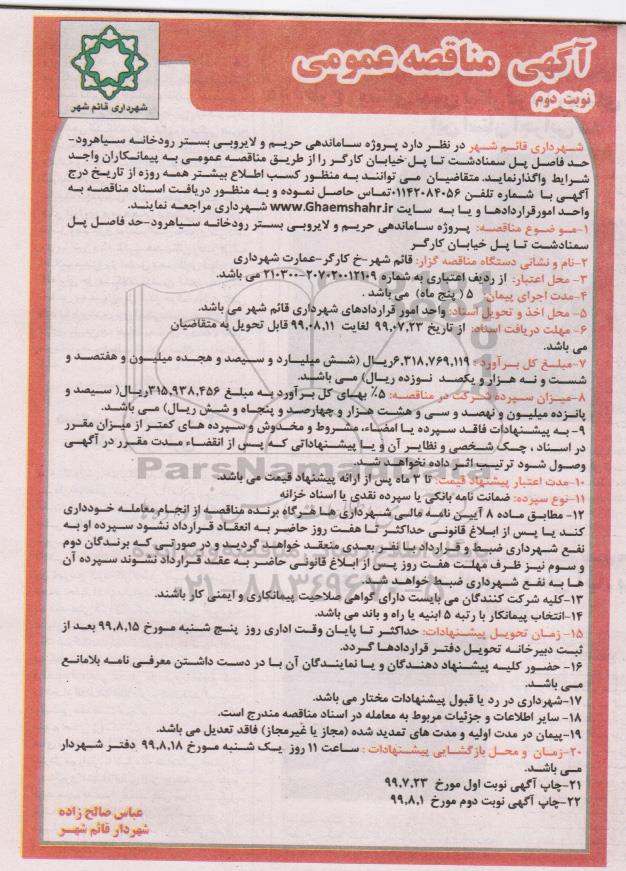 آگهی مناقصه عمومی
نوبت دوم
شهرداری قائم شهر
شهرداری قائم شهر در نظر دارد پروژه ساماندهی حریم و لایروبی بستر رودخانه سیاهرود-
حد فاصل پل سمنادشت تا پل خیابان کارگر را از طریق مناقصه عمومی به پیمانکاران واجد
شرایط واگذارنماید. متقاضیان می توانند به منظور کسب اطلاع بیشتر همه روزه از تاریخ درج
آگهی با شماره تلفن ۰۱۱۴۲۰۸۴۰۵۶تماس حاصل نموده و به منظور دریافت اسناد مناقصه به
واحد امورقراردادها و یا به سایت www.Ghaemshahr.ir شهرداری مراجعه نمایند.
۱-موضوع مناقصه: پروژه ساماندهی حریم و لایروبی بستر رودخانه سیاهرود-حد فاصل پل
سمنادشت تا پل خیابان کارگر
۲-نام و نشانی دستگاه مناقصه گزار: قائم شهر-خ کارگر-عمارت شهرداری
۳- محل اعتبار: از ردیف اعتباری به شماره ۲۰۷۰۲۰۰۱۲۱۰۹-۲۱۰۳۰۰ می باشد.
۴-مدت اجرای پیمان: ۵ ( پنج ماه) می باشد .
۵- محل اخذ و تحویل اسناد: واحد امور قراردادهای شهرداری قائم شهر می باشد.
۶- مهلت دریافت اسناد: از تاریخ ۹۹.۰۷.۲۳ لغایت ۹۹.۰۸.۱۱ قابل تحویل به متقاضیان
می باشد.
۷-مبلغ کل برآورد: ۶.۳۱۸.۷۶۹.۱۱۹ریال (شش میلیارد و سیصد و هجده میلیون و هفتصد و
شست و نه هزار و یکصد نوزده ریال) می باشد.
۸-میزان سپرده شرکت در مناقصه: ۵٪ بهای کل برآورد به مبلغ ۳۱۵.۹۳۸.۴۵۶ریال( سیصد و
پانزده میلیون و نهصد و سی و هشت هزار و چهارصد و پنجاه و شش ریال) می باشد.
۹- به پیشنهادات فاقد سپرده یا امضاء، مشروط و مخدوش و سپرده های کمتر از میزان مقرر
در اسناد ، چک شخصی و نظایر آن و یا پیشنهاداتی که پس از انقضاء مدت مقرر در آگهی
وصول شود ترتیب اثر داده نخواهد شد.
۱۰-مدت اعتبار پیشنهاد قیمت: تا ۳ ماه پس از ارائه پیشنهاد قیمت می باشد.
۱۱-نوع سپرده: ضمانت نامه بانکی یا سپرده نقدی یا اسناد خزانه
۱۲- مطابق ماده ۸ آیین نامه مالی شهرداری ها هرگاه برنده مناقصه از انجام معامله خودداری
کند یا پس از ابلاغ قانونی حداکثر تا هفت روز حاضر به انعقاد قرارداد نشود سپرده او به
نفع شهرداری ضبط و قرارداد با نفر بعدی منعقد خواهد گردید و در صورتی که برندگان دوم
و سوم نیز ظرف مهلت هفت روز پس از ابلاغ قانونی حاضر به عقد قرارداد نشوند سپرده آن
ها به نفع شهرداری ضبط خواهد شد.
۱۳-کلیه شرکت کنندگان می بایست دارای گواهی صلاحیت پیمانکاری و ایمنی کار باشند.
۱۴-انتخاب پیمانکار با رتبه ۵ ابنیه یا راه و باند می باشد.
۱۵- زمان تحویل پیشنهادات: حداکثر تا پایان وقت اداری روز پنج شنبه مورخ ۹۹.۸.۱۵ بعد از
ثبت دبیرخانه تحویل دفتر قراردادها گردد.
۱۶- حضور کلیه پیشنهاد دهندگان و یا نمایندگان آن با در دست داشتن معرفی نامه بلامانع
می باشد.
۱۷-شهرداری در رد یا قبول پیشنهادات مختار می باشد.
۱۸- سایر اطلاعات و جزئیات مربوط به معامله در اسناد مناقصه مندرج است.
۱۹-پیمان در مدت اولیه و مدت های تمدید شده (مجاز یا غیرمجاز) فاقد تعدیل می باشد.
۲۰-زمان و محل بازگشایی پیشنهادات : ساعت ۱۱ روز یک شنبه مورخ ۹۹.۸.۱۸ دفتر شهردار
می باشد.
۲۱-چاپ آگهی نوبت اول مورخ ۹۹.۷.۲۳
۲۲-چاپ آگهی نوبت دوم مورخ ۹۹.۸.۱
عباس صالح زاده
شهردار قائم شهر
ParsNamadData